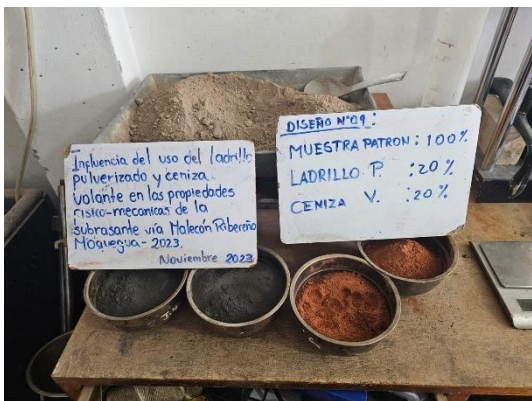 Influencia del uso del ladrillo
pulverizado y ceniza
volante en las propiedades
físico-mecánicas de la
subrasante vía Malecón Ribereño
Moquegua - 2023.
Noviembre 2023
DISEÑO N°09 :
MUESTRA PATRON : 100%
LADRILLO P. : 20%
CENIZA V. : 20%